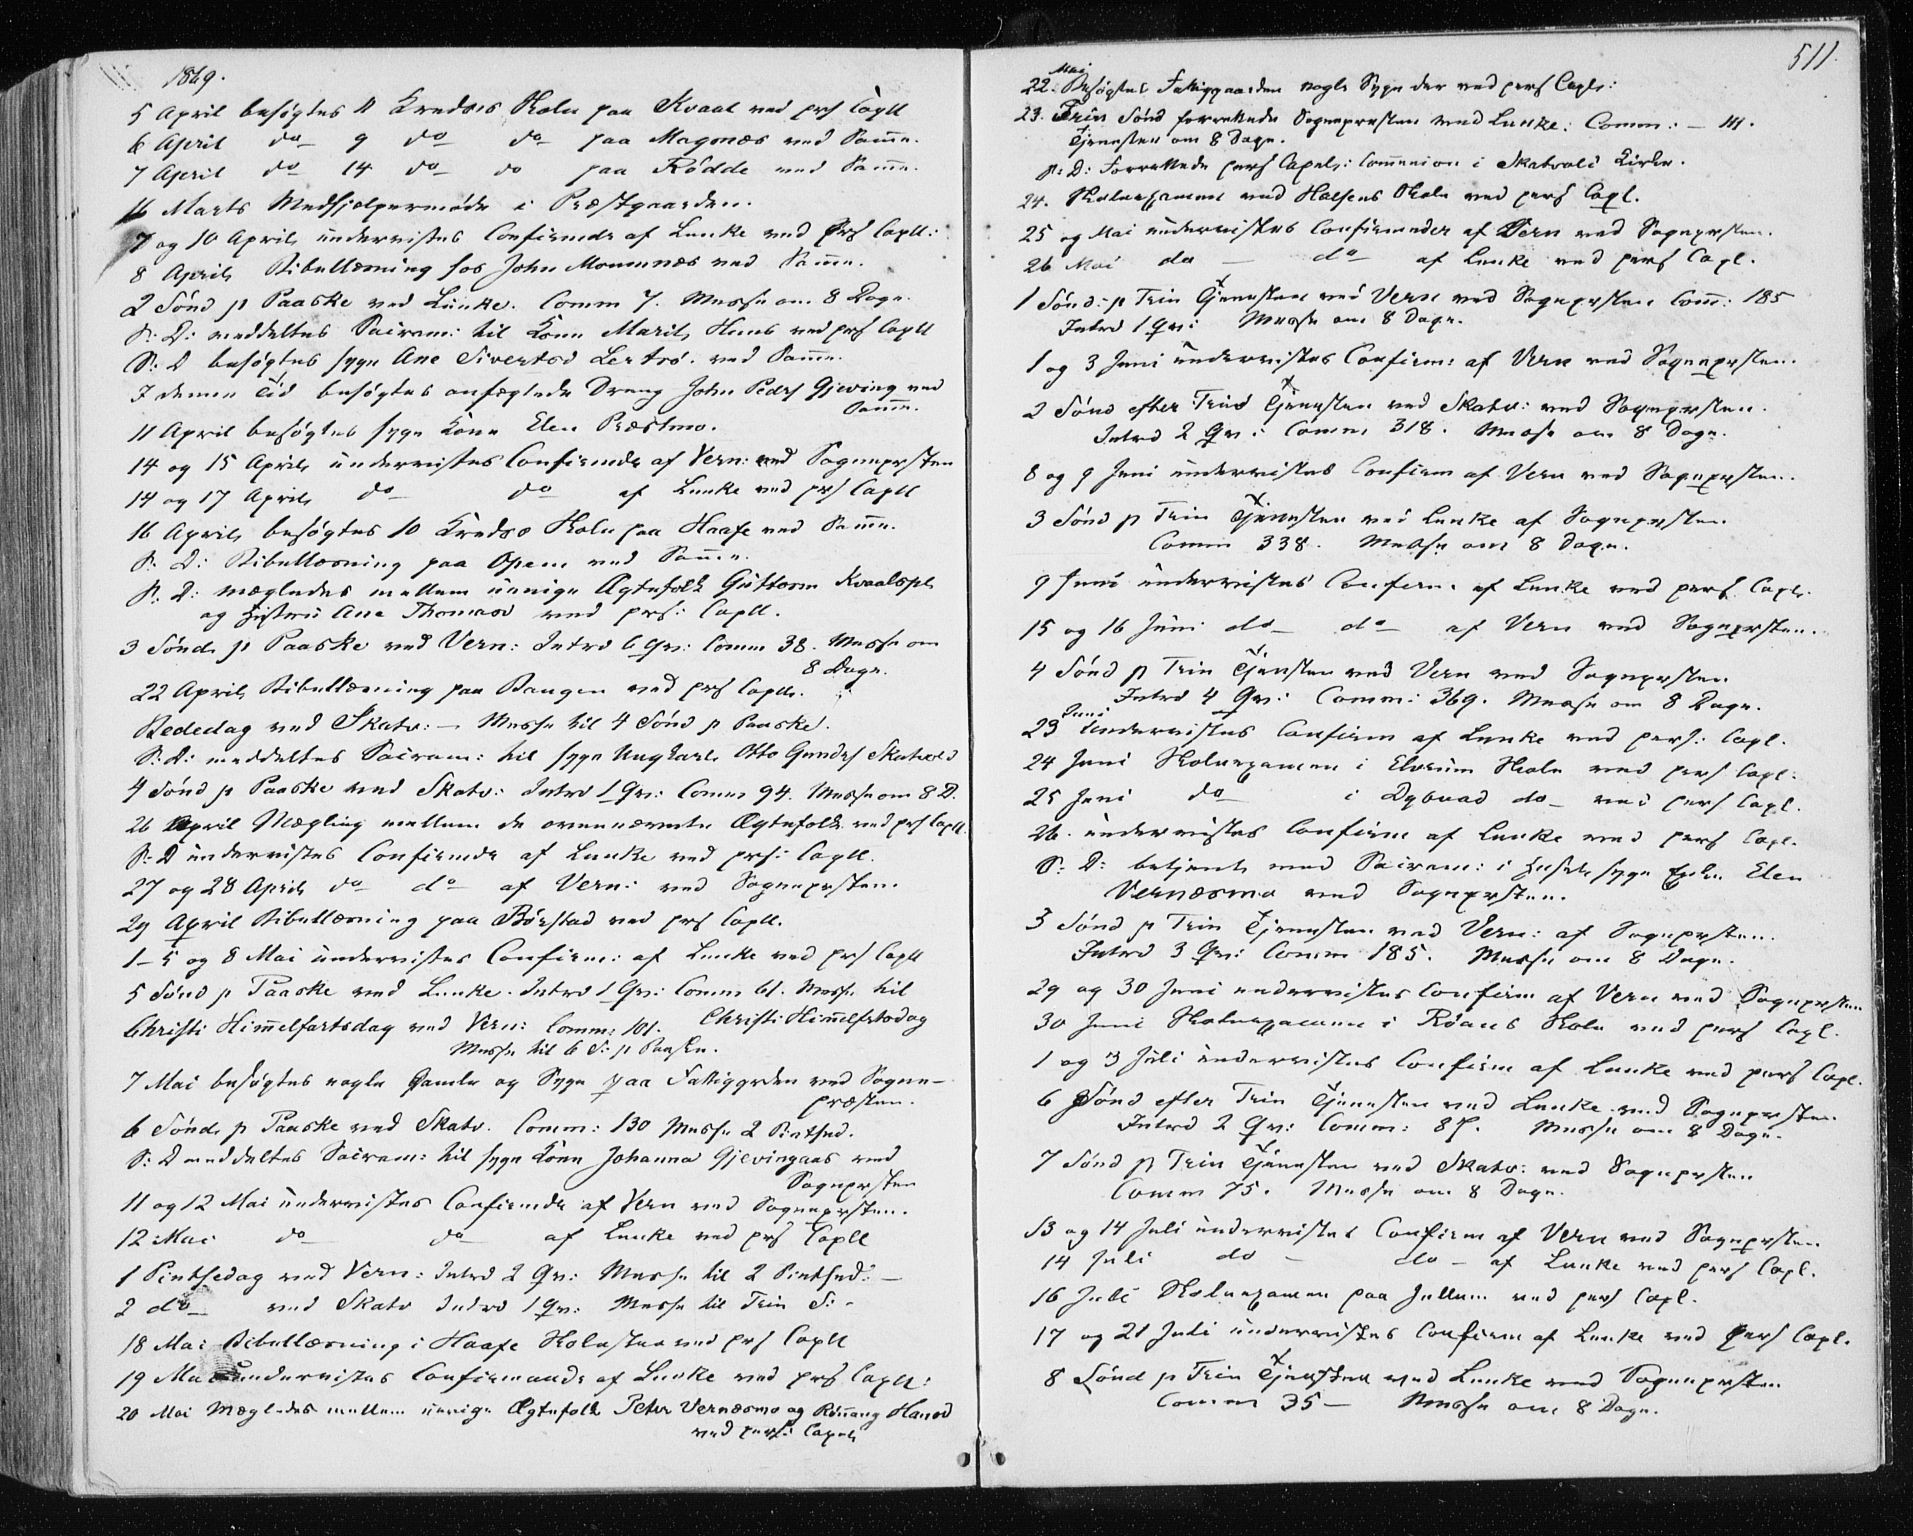 1869.
5 April besögtes 11 Kredsis Skole paa Kvaal ved prs Capll
6 April do 9 do do paa Magnæs ved Samme.
7 April do 14 do do paa Rödde ved Samme.
16 Marts Medhjelpermöde i Præstgaarden.
7 og 10 April undervistes Confirmds af Lunke ved prs Capll:
8 April Bibellæsning hos John Moumnæs ved Samme.
2 Sönd p Paaske ved Lunke. Comm 7. Messe om 8 Dage.
S: D: meddeltes Sacram: til Kone Marit ved prs Capll
S: D besögtes syge Ane Sivertsd Lertrö. ved Samme.
I denne Tid besögtes Dreng John Peders Gjeving ved
Samme.
11 April besögtes syge Kone Elen Præstmo.
14 og 15 April undervistes Confirmds af Vern: ved Sogneprsten
14 og 17 April do do af Lunke ved prs Capll
16 April besögtes 10 Kredss Skole paa Haafe ved Samme.
S: D: Bibellæsning paa Opem ved Samme.
S: D: mægledes mellem uenige Ægtefolk Guttorm Kvaalspl
og Hustru Ane Thomasd ved prs: Capll.
3 Sönd. p Paaske ved Vern: Introd 6 Qv: Comm 38. Messe om
8 Dage.
22 April Bibellæsning paa Baugen ved prs Capll.
Bededag ved Skatv: — Messe til 4 Sönd p Paaske.
S: D: meddeltes Sacram: til syge Ungkarl Otto Gunders Skatvold
4 Sönd p Paaske ved Skatv: Introd 1 Qv: Comm 94. Messe om 8 D.
26 April Mægling mellem de ovennævnte Ægtefolk ved prs Capll.
S: D undervistes Confirmds af Lunke ved prs: Capll.
27 og 28 April do do af Vern: ved Sogneprsten.
29 April Bibellæsning paa Börstad ved prs Capll.
1–5 og 8 Mai undervistes Confirm: af Lunke ved prs Capll
5 Sönd p Paaske ved Lunke. Introd 1 Qv: Comm 61. Messe til
Christi Himmelfartsdag
Christi Himmelfartsdag ved Vern: Comm: 101.
Messe til 6 S: p Paaske.
7 Mai besögtes nogle Gamle og Syge paa Fattiggrden ved Sogne-
præsten.
6 Sönd. p Paaske ved Skatv. Comm: 130 Messe 2 Pintsed.
S: D meddeltes Sacram: til syge Kone Johanna Gjevingaas ved
Sogneprsten
11 og 12 Mai undervistes Confirmds af Vern ved Sogneprsten.
12 Mai do do af Lunke ved prs Capll
1 Pintsedag ved Vern: Introd 2 Qv: Messe til 2 Pintsed: —
2 do ved Skatv Introd 1 Qv: Messe til Trin S: -
18 Mai Bibellæsning i Haafe Skolestue ved prs Capll
19 Mai undervistes Confirmands af Lunke ved prs Capll:
20 Mai Mægledes mellem uenige Ægtefolk Peter Vernæsmo og Rönnaug Hansd
ved pers: Capel
511.
Mai
22. Besögtes Fattiggaarden nogle Syge der ved pers Capl:
23. Trin Sönd forrettede Sogneprsten ved Lunke: Comm: — 111.
Tjenesten om 8 Dage.
S: D: Forrettede pers Capel: Communion i Skatvold Kirke.
24. Skoleexamen ved Halsens Skole ved pers Capl.
25 og Mai undervistes Confirmander af Vern ved Sogneprsten.
26 Mai do — do af Lunke ved pers Capl.
1 Sönd: p Trin Tjenesten ved Vern ved Sogneprsten Comm: 185
Introd 1 Qv: Messe om 8 Dage.
1 og 3 Juni undervistes Confirm: af Vern ved Sogneprsten.
2 Sönd efter Trin Tjenesten ved Skatv: ved Sogneprsten.
Introd 2 Qv: Comm 318. Messe om 8 Dage.
8 og 9 Juni undervistes Confirm af Vern ved Sogneprsten.
3 Sönd p Trin Tjenesten ved Lunke af Sogneprsten
Comm 338. Messe om 8 Dage.
9 Juni undervistes Confirm. af Lunke ved pers. Capl.
15 og 16 Juni do do af Vern ved Sogneprsten.
4 Sönd p Trin Tjensten ved Vern ved Sogneprsten
Introd 4 Qv: Comm: 369. Messe om 8 Dage.
Juni
23 Undervistes Confirm af Lunke ved pers: Capl.
24 Juni Skoleexamen i Elvrum Skole ved pers Capl:
25 Juni do i Dybvad do ved pers Capl.
26. undervistes Confirm af Lunke ved pers Capl.
S: D: betjent med Sacram: i Huset syge Enke Elen
Vernæsmo ved Sogneprsten.
3 Sönd p Trin Tjenesten ved Vern: af Sogneprsten.
Introd 3 Qv: Comm 185. Messe om 8 Dage.
29 og 30 Juni undervistes Confirm af Vern ved Sogneprsten
30 Juni Skoleexamen i Röaas Skole ved pers Capl.
1 og 3 Juli undervistes Confirm af Lunke ved pers Capl.
6 Sönd efter Trin Tjenesten ved Lunke ved Sogneprsten
Introd 2 Qv: Comm: 88. Messe om 8 Dage.
7 Sönd p Trin Tjenesten ved Skatv: ved Sogneprsten
Comm 75. Messe om 8 Dage.
13 og 14 Juli undervistes Confirm af Vern ved Sogneprsten
14 Juli do — do — af Lunke ved pers Capl.
16 Juli Skoleexamen paa Jullum ved pers Capl.
17 og 21 Juli undervistes Confirm af Lunke ved pers Capl.
8 Sönd p Trin Tjenesten ved Lunke ved Sogneprsten
Comm 35 — Messe om 8 Dage.